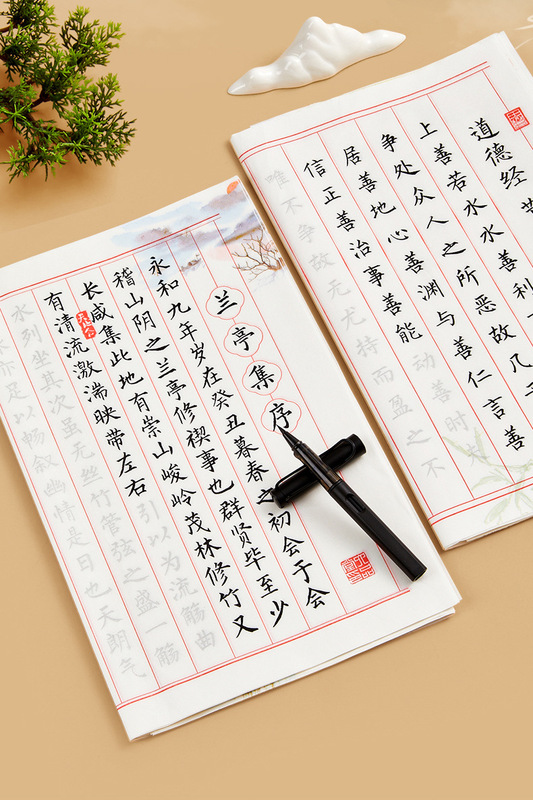 道德经
上善若水水善利
争处众人之所恶故几
居善地心善渊与善仁言善
信正善治事善能动善时夫
唯不争故无尤持而盈之不
兰亭集序
永和九年岁在癸丑暮春之初会于会
稽山阴之兰亭修禊事也群贤毕至少
长咸集此地有崇山峻岭茂林修竹又
有清流激湍映带左右引以为流觞曲
水列坐其次虽无丝竹管弦之盛一觞
亦足以畅叙幽情是日也天朗气